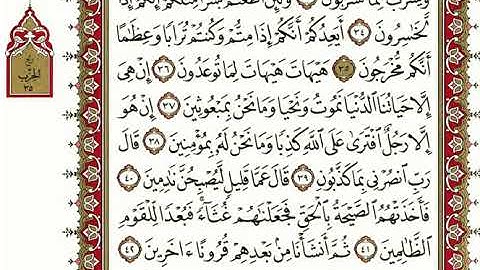 وَيَشْرَبُ مِمَّا تَشْرَبُونَ ۝٣٣ وَلَئِنْ أَطَعْتُم بَشَرًا مِّثْلَكُمْ إِنَّكُمْ إِذًا
لَّخَٰسِرُونَ ۝٣٤ أَيَعِدُكُمْ أَنَّكُمْ إِذَا مِتُّمْ وَكُنتُمْ تُرَابًا وَعِظَٰمًا
أَنَّكُم مُّخْرَجُونَ ۝٣٥ هَيْهَاتَ هَيْهَاتَ لِمَا تُوعَدُونَ ۝٣٦ إِنْ هِىَ
إِلَّا حَيَاتُنَا ٱلدُّنْيَا نَمُوتُ وَنَحْيَا وَمَا نَحْنُ بِمَبْعُوثِينَ ۝٣٧ إِنْ هُوَ
إِلَّا رَجُلٌ ٱفْتَرَىٰ عَلَى ٱللَّهِ كَذِبًا وَمَا نَحْنُ لَهُۥ بِمُؤْمِنِينَ ۝٣٨ قَالَ
رَبِّ ٱنصُرْنِى بِمَا كَذَّبُونِ ۝٣٩ قَالَ عَمَّا قَلِيلٍ لَّيُصْبِحُنَّ نَٰدِمِينَ ۝٤٠
فَأَخَذَتْهُمُ ٱلصَّيْحَةُ بِٱلْحَقِّ فَجَعَلْنَٰهُمْ غُثَآءً ۚ فَبُعْدًا لِّلْقَوْمِ
ٱلظَّٰلِمِينَ ۝٤١ ثُمَّ أَنشَأْنَا مِنۢ بَعْدِهِمْ قُرُونًا ءَاخَرِينَ ۝٤٢
رُبْع
ٱلْحِزْب
٣٥